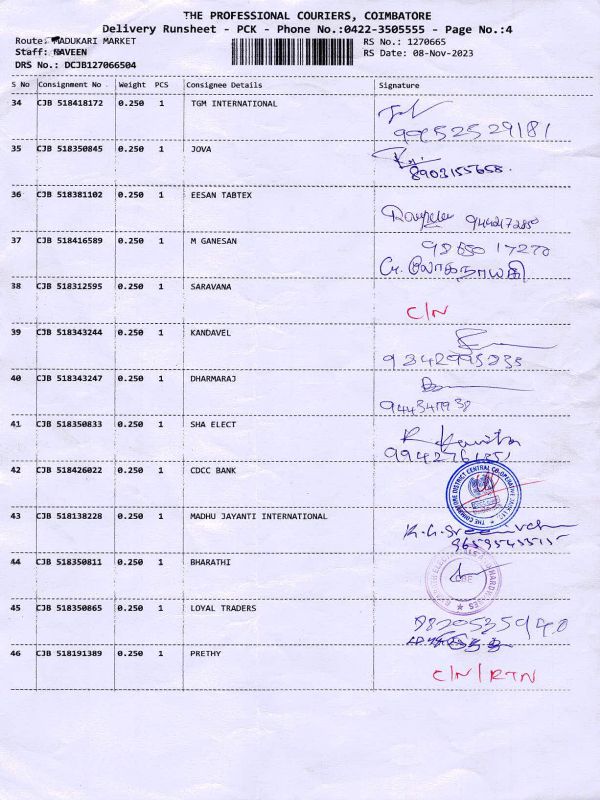 THE PROFESSIONAL COURIERS, COIMBATORE
Delivery Runsheet - PCK - Phone No.:0422-3505555 - Page No.:4
Route: MADUKARI MARKET RS No.: 1270665
Staff: NAVEEN RS Date: 08-Nov-2023
DRS No.: DCJB127066504
S No Consignment No Weight PCS Consignee Details Signature
34 CJB 518418172 0.250 1 TGM INTERNATIONAL
9952529181
35 CJB 518350845 0.250 1 JOVA
8903155658.
36 CJB 518381102 0.250 1 EESAN TABTEX
37 CJB 518416589 0.250 1 M GANESAN
38 CJB 518312595 0.250 1 SARAVANA
C/N
39 CJB 518343244 0.250 1 KANDAVEL
40 CJB 518343247 0.250 1 DHARMARAJ
41 CJB 518350833 0.250 1 SHA ELECT
42 CJB 518426022 0.250 1 CDCC BANK
43 CJB 518138228 0.250 1 MADHU JAYANTI INTERNATIONAL
44 CJB 518350811 0.250 1 BHARATHI
45 CJB 518350865 0.250 1 LOYAL TRADERS
46 CJB 518191389 0.250 1 PRETHY
C/N/RTN